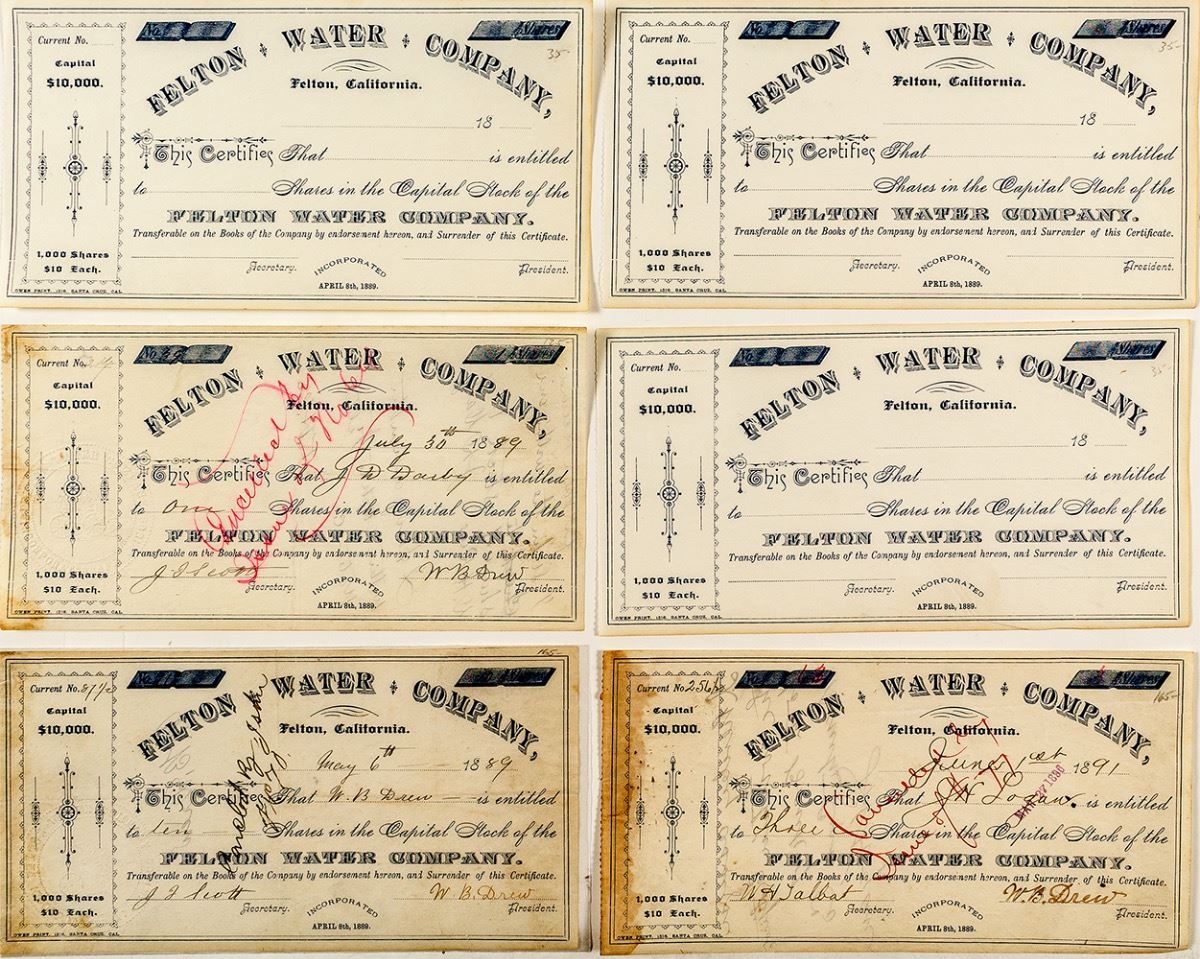 No. Shares
Current No. FELTON WATER COMPANY,
35-
Capital
$10,000.
Felton, California.
18
This Certifies That is entitled
to Shares in the Capital Stock of the
FELTON WATER COMPANY.
Transferable on the Books of the Company by endorsement hereon, and Surrender of this Certificate.
1,000 Shares
$10 Each.
Secretary. INCORPORATED President.
APRIL 8th, 1889.
OWEN PRINT, 1216, SANTA CRUZ, CAL.
No. Shares
Current No. FELTON WATER COMPANY,
35-
Capital
$10,000.
Felton, California.
18
This Certifies That is entitled
to Shares in the Capital Stock of the
FELTON WATER COMPANY.
Transferable on the Books of the Company by endorsement hereon, and Surrender of this Certificate.
1,000 Shares
$10 Each.
Secretary. INCORPORATED President.
APRIL 8th, 1889.
OWEN PRINT, 1216, SANTA CRUZ, CAL.
No. Shares
Current No. FELTON WATER COMPANY,
Capital
$10,000.
Felton, California.
July 30th 1889
This Certifies That J D Darby is entitled
to One Shares in the Capital Stock of the
FELTON WATER COMPANY.
Transferable on the Books of the Company by endorsement hereon, and Surrender of this Certificate.
1,000 Shares
$10 Each.
J F Scott W B Drew
Secretary. INCORPORATED President.
APRIL 8th, 1889.
OWEN PRINT, 1216, SANTA CRUZ, CAL.
Cancelled by
No. Shares
Current No. FELTON WATER COMPANY,
35-
Capital
$10,000.
Felton, California.
18
This Certifies That is entitled
to Shares in the Capital Stock of the
FELTON WATER COMPANY.
Transferable on the Books of the Company by endorsement hereon, and Surrender of this Certificate.
1,000 Shares
$10 Each.
Secretary. INCORPORATED President.
APRIL 8th, 1889.
OWEN PRINT, 1216, SANTA CRUZ, CAL.
165-
No. Shares
Current No. FELTON WATER COMPANY,
Capital
$10,000.
Felton, California.
May 6th 1889
This Certifies That W. B Drew is entitled
to ten Shares in the Capital Stock of the
FELTON WATER COMPANY.
Transferable on the Books of the Company by endorsement hereon, and Surrender of this Certificate.
1,000 Shares
$10 Each.
J F Scott W. B. Drew
Secretary. INCORPORATED President.
APRIL 8th, 1889.
OWEN PRINT, 1216, SANTA CRUZ, CAL.
Cancelled By
No. Shares
Current No. FELTON WATER COMPANY,
165-
Capital
$10,000.
Felton, California.
June 1st 1891
This Certifies That J W Logan. is entitled
to Three Shares in the Capital Stock of the
FELTON WATER COMPANY.
Transferable on the Books of the Company by endorsement hereon, and Surrender of this Certificate.
1,000 Shares
$10 Each.
W H Talbot W. B. Drew
Secretary. INCORPORATED President.
APRIL 8th, 1889.
OWEN PRINT, 1216, SANTA CRUZ, CAL.
Cancelled by